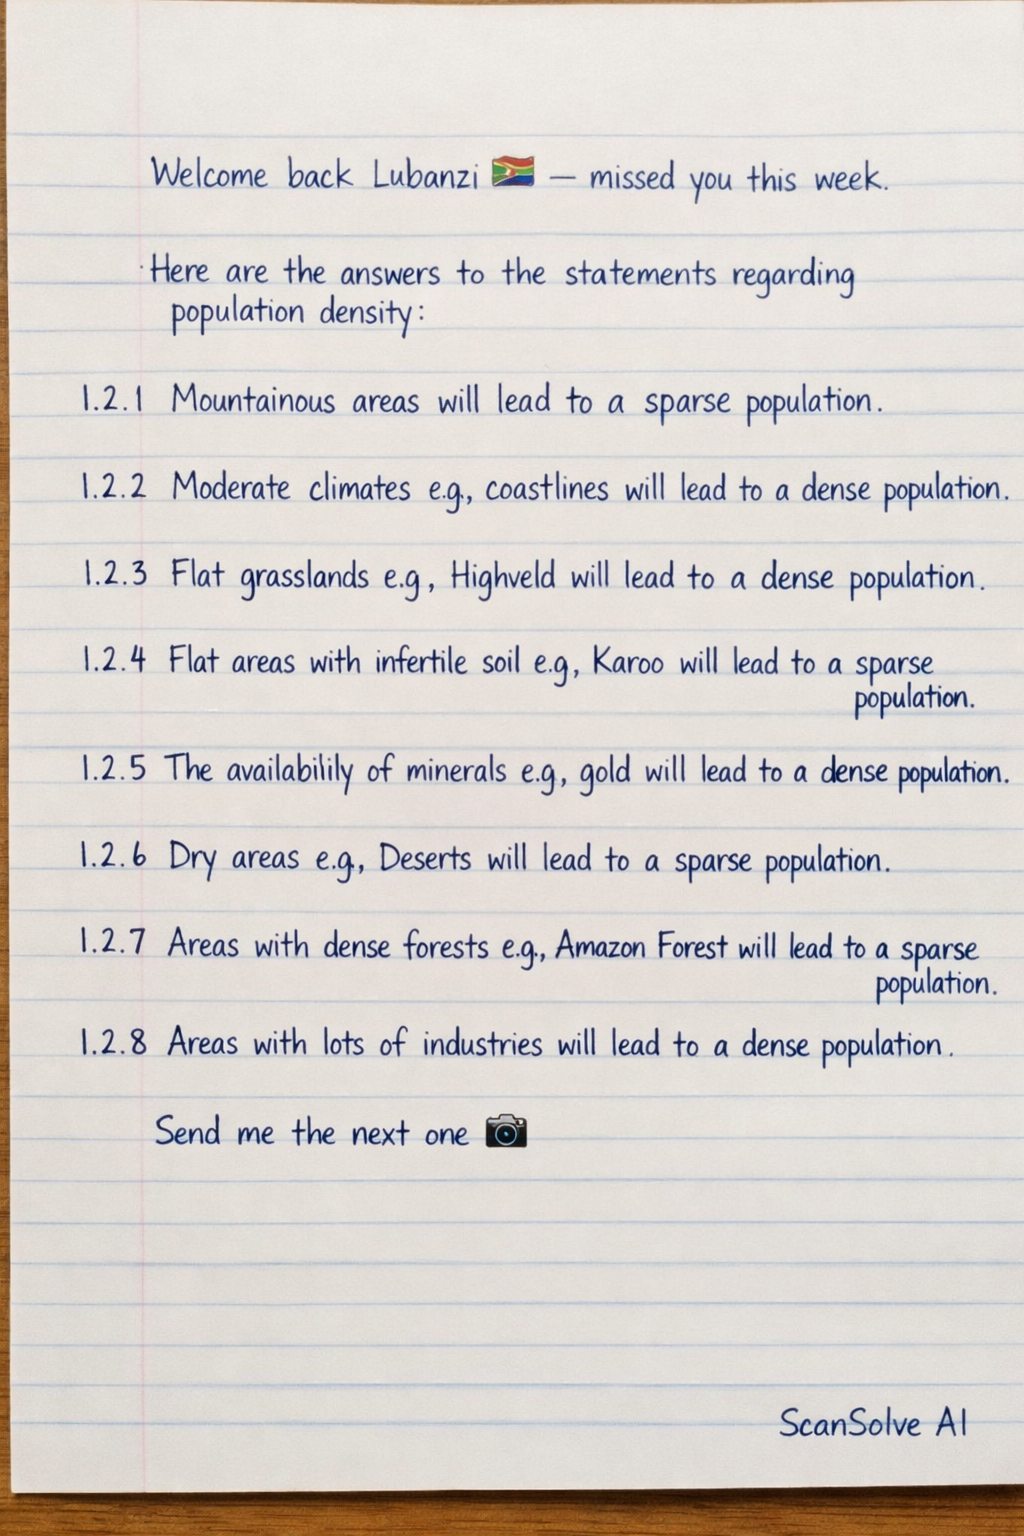 Welcome back Lubanzi 🇿🇦 — missed you this week.
Here are the answers to the statements regarding
population density:
1.2.1 Mountainous areas will lead to a sparse population.
1.2.2 Moderate climates e.g., coastlines will lead to a dense population.
1.2.3 Flat grasslands e.g., Highveld will lead to a dense population.
1.2.4 Flat areas with infertile soil e.g., Karoo will lead to a sparse
population.
1.2.5 The availabilily of minerals e.g., gold will lead to a dense population.
1.2.6 Dry areas e.g., Deserts will lead to a sparse population.
1.2.7 Areas with dense forests e.g., Amazon Forest will lead to a sparse
population.
1.2.8 Areas with lots of industries will lead to a dense population.
Send me the next one 📷
ScanSolve AI